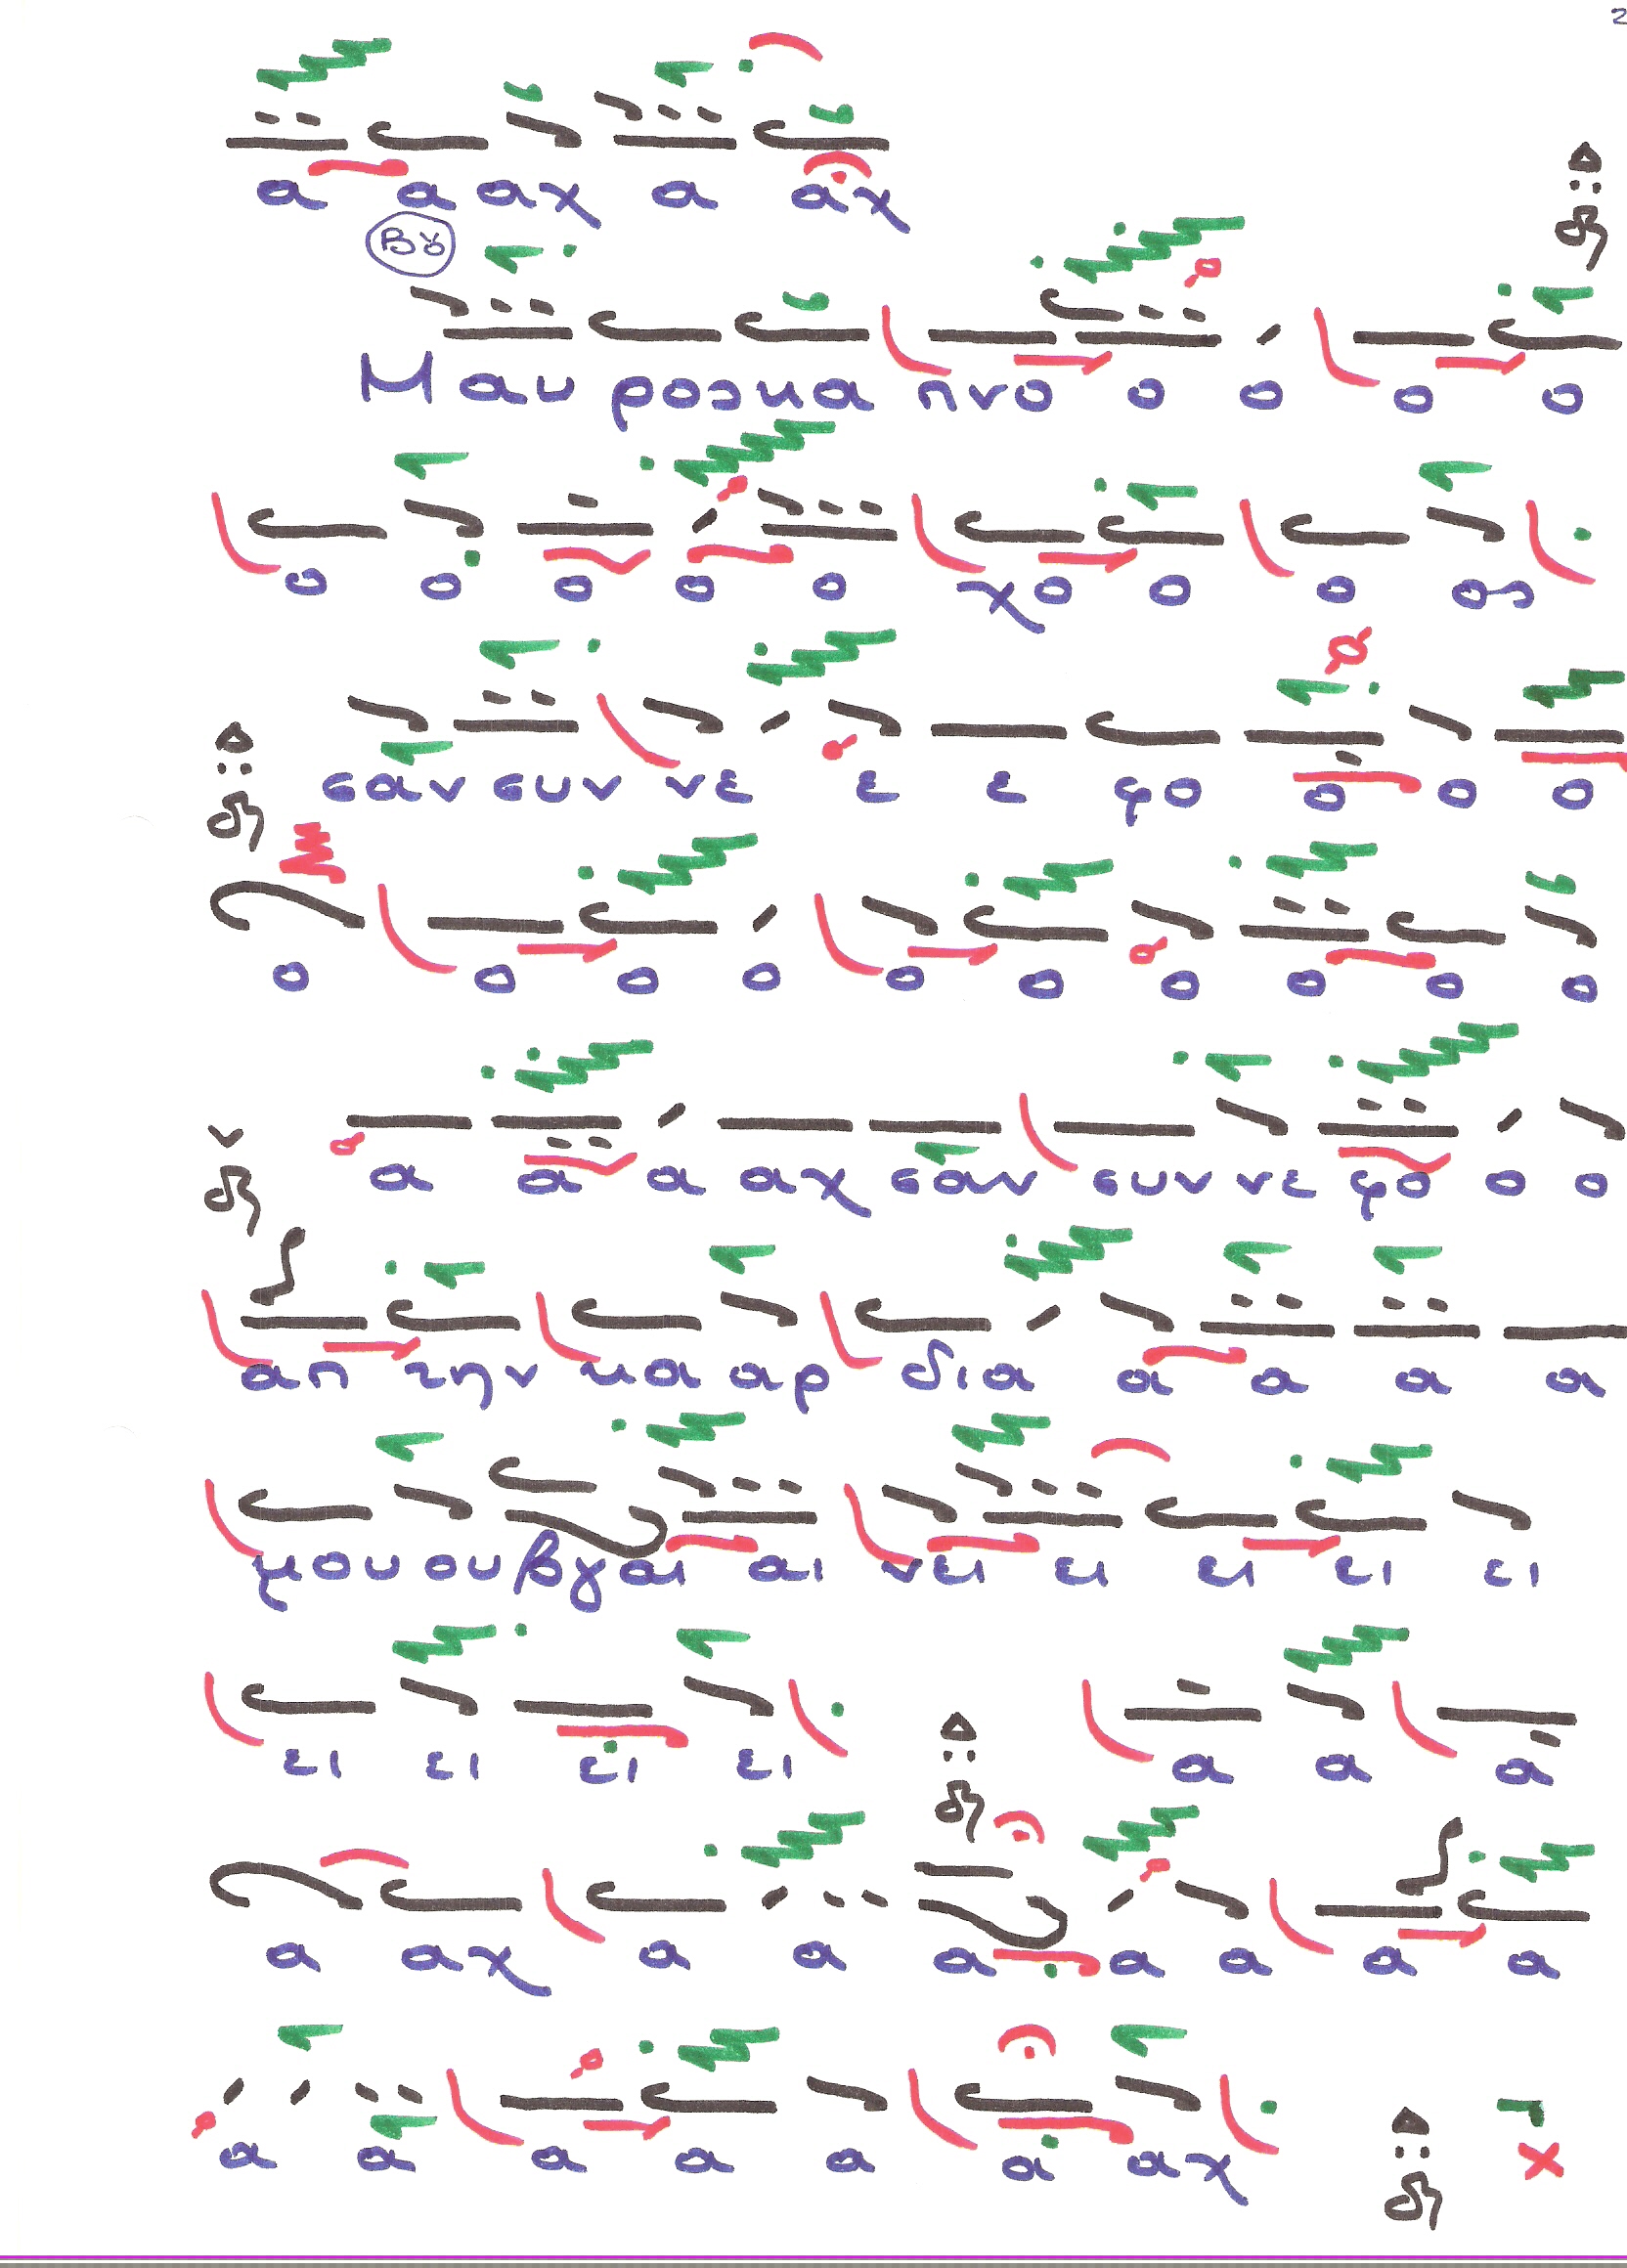 2
α α αχ α αχ
δη
Βου
Μαυ ροσκα πνο ο ο ο ο
ο ο ο ο ο χο ο ο ος
δη
σαν συν νε ε ε φο ο ο ο
ο ο ο ο ο ο ο ο ο ο
δη
α α α αχ σαν συν νε φο ο ο
απ την κα αρ δια α α α α
μου ου βγαι αι νει ει ει ει ει
ει ει ει ει δη α α α
α αχ α α α α α α α
α α α α α α αχ δη